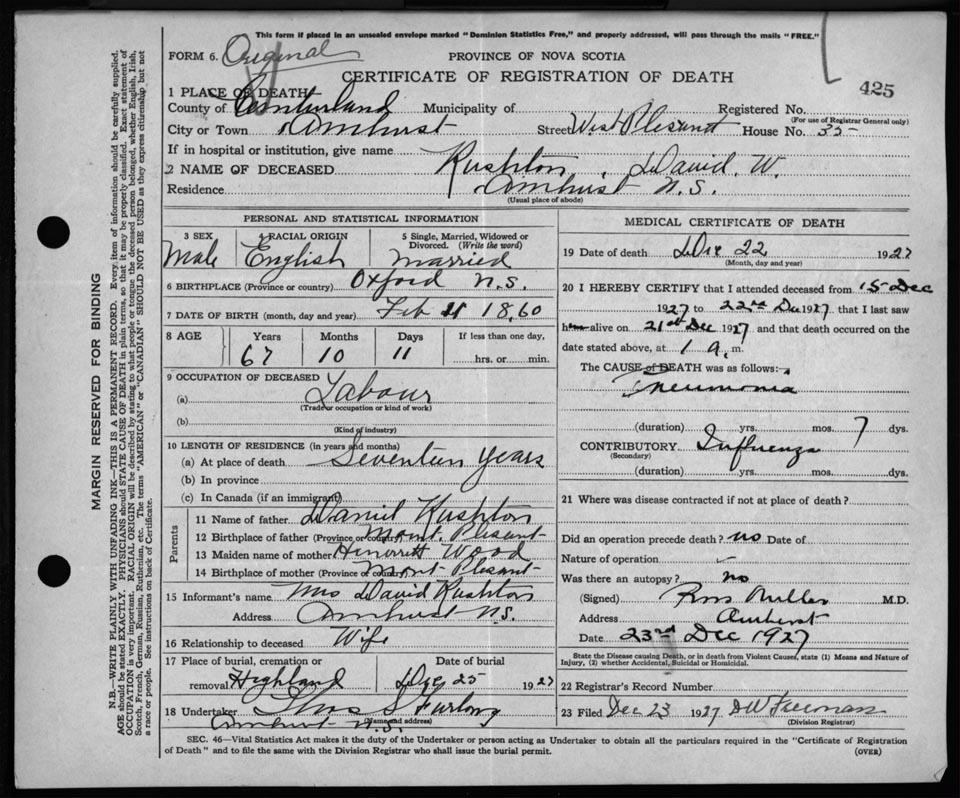 This form if placed in an unsealed envelope marked "Dominion Statistics Free," and properly addressed, will pass through the mails "FREE."
FORM 6. Original
PROVINCE OF NOVA SCOTIA
CERTIFICATE OF REGISTRATION OF DEATH
425
1 PLACE OF DEATH—
County of Cumberland Municipality of Registered No.
(For use of Registrar General only)
City or Town Amhurst Street West Plesant House No. 35
If in hospital or institution, give name
2 NAME OF DECEASED Rushton, David W.
Residence Amhurst N.S.
(Usual place of abode)
PERSONAL AND STATISTICAL INFORMATION
3 SEX 4 RACIAL ORIGIN 5 Single, Married, Widowed or Divorced. (Write the word)
Male English Married
6 BIRTHPLACE (Province or country) Oxford N.S.
7 DATE OF BIRTH (month, day and year) Feb 11 1860
8 AGE Years Months Days If less than one day,
67 10 11 hrs. or min.
9 OCCUPATION OF DECEASED
(a) Labour
(Trade or occupation or kind of work)
(b)
(Kind of industry)
10 LENGTH OF RESIDENCE (in years and months)
(a) At place of death Seventeen years
(b) In province
(c) In Canada (if an immigrant)
Parents
11 Name of father Daniel Rushton
12 Birthplace of father (Province or country) Mount. Plesant
13 Maiden name of mother Wood
14 Birthplace of mother (Province or country) Mont Plesant
15 Informant's name Mrs David Rushton
Address Amhurst N.S.
16 Relationship to deceased Wife
17 Place of burial, cremation or removal Highland Date of burial Dec 25 1927
18 Undertaker Thos S Furlong
(Name and address)
Amhurst N.S.
MEDICAL CERTIFICATE OF DEATH
19 Date of death Dec 22 1927
(Month, day and year)
20 I HEREBY CERTIFY that I attended deceased from 15 Dec
1927 to 22nd Dec 1927, that I last saw
him alive on 21st Dec 1927 and that death occurred on the
date stated above, at 1 a. m.
The CAUSE of DEATH was as follows:
Pneumonia
(duration) yrs. mos. 7 dys.
CONTRIBUTORY Influenza
(Secondary)
(duration) yrs. mos. dys.
21 Where was disease contracted if not at place of death?
Did an operation precede death? no Date of
Nature of operation
Was there an autopsy? no
(Signed) Ross Millar M.D.
Address Amherst
Date 23rd Dec 1927
State the Disease causing Death, or in death from Violent Causes, state (1) Means and Nature of Injury, (2) whether Accidental, Suicidal or Homicidal.
22 Registrar's Record Number
23 Filed Dec 23 1927 DW Freeman
(Division Registrar)
SEC. 46—Vital Statistics Act makes it the duty of the Undertaker or person acting as Undertaker to obtain all the particulars required in the "Certificate of Registration of Death" and to file the same with the Division Registrar who shall issue the burial permit.
(OVER)
MARGIN RESERVED FOR BINDING
N.B.—WRITE PLAINLY WITH UNFADING INK—THIS IS A PERMANENT RECORD. Every item of information should be carefully supplied.
AGE should be stated EXACTLY. PHYSICIANS should STATE CAUSE OF DEATH in plain terms, so that it may be properly classified. Exact statement of
OCCUPATION is very important. RACIAL ORIGIN will be described by stating to what people or tongue the deceased person belonged, whether English, Irish,
Scotch, French, German, Russian, Ruthenian, etc. The terms "AMERICAN" or "CANADIAN" SHOULD NOT BE USED as they express citizenship but not
a race or people. See instructions on back of Certificate.